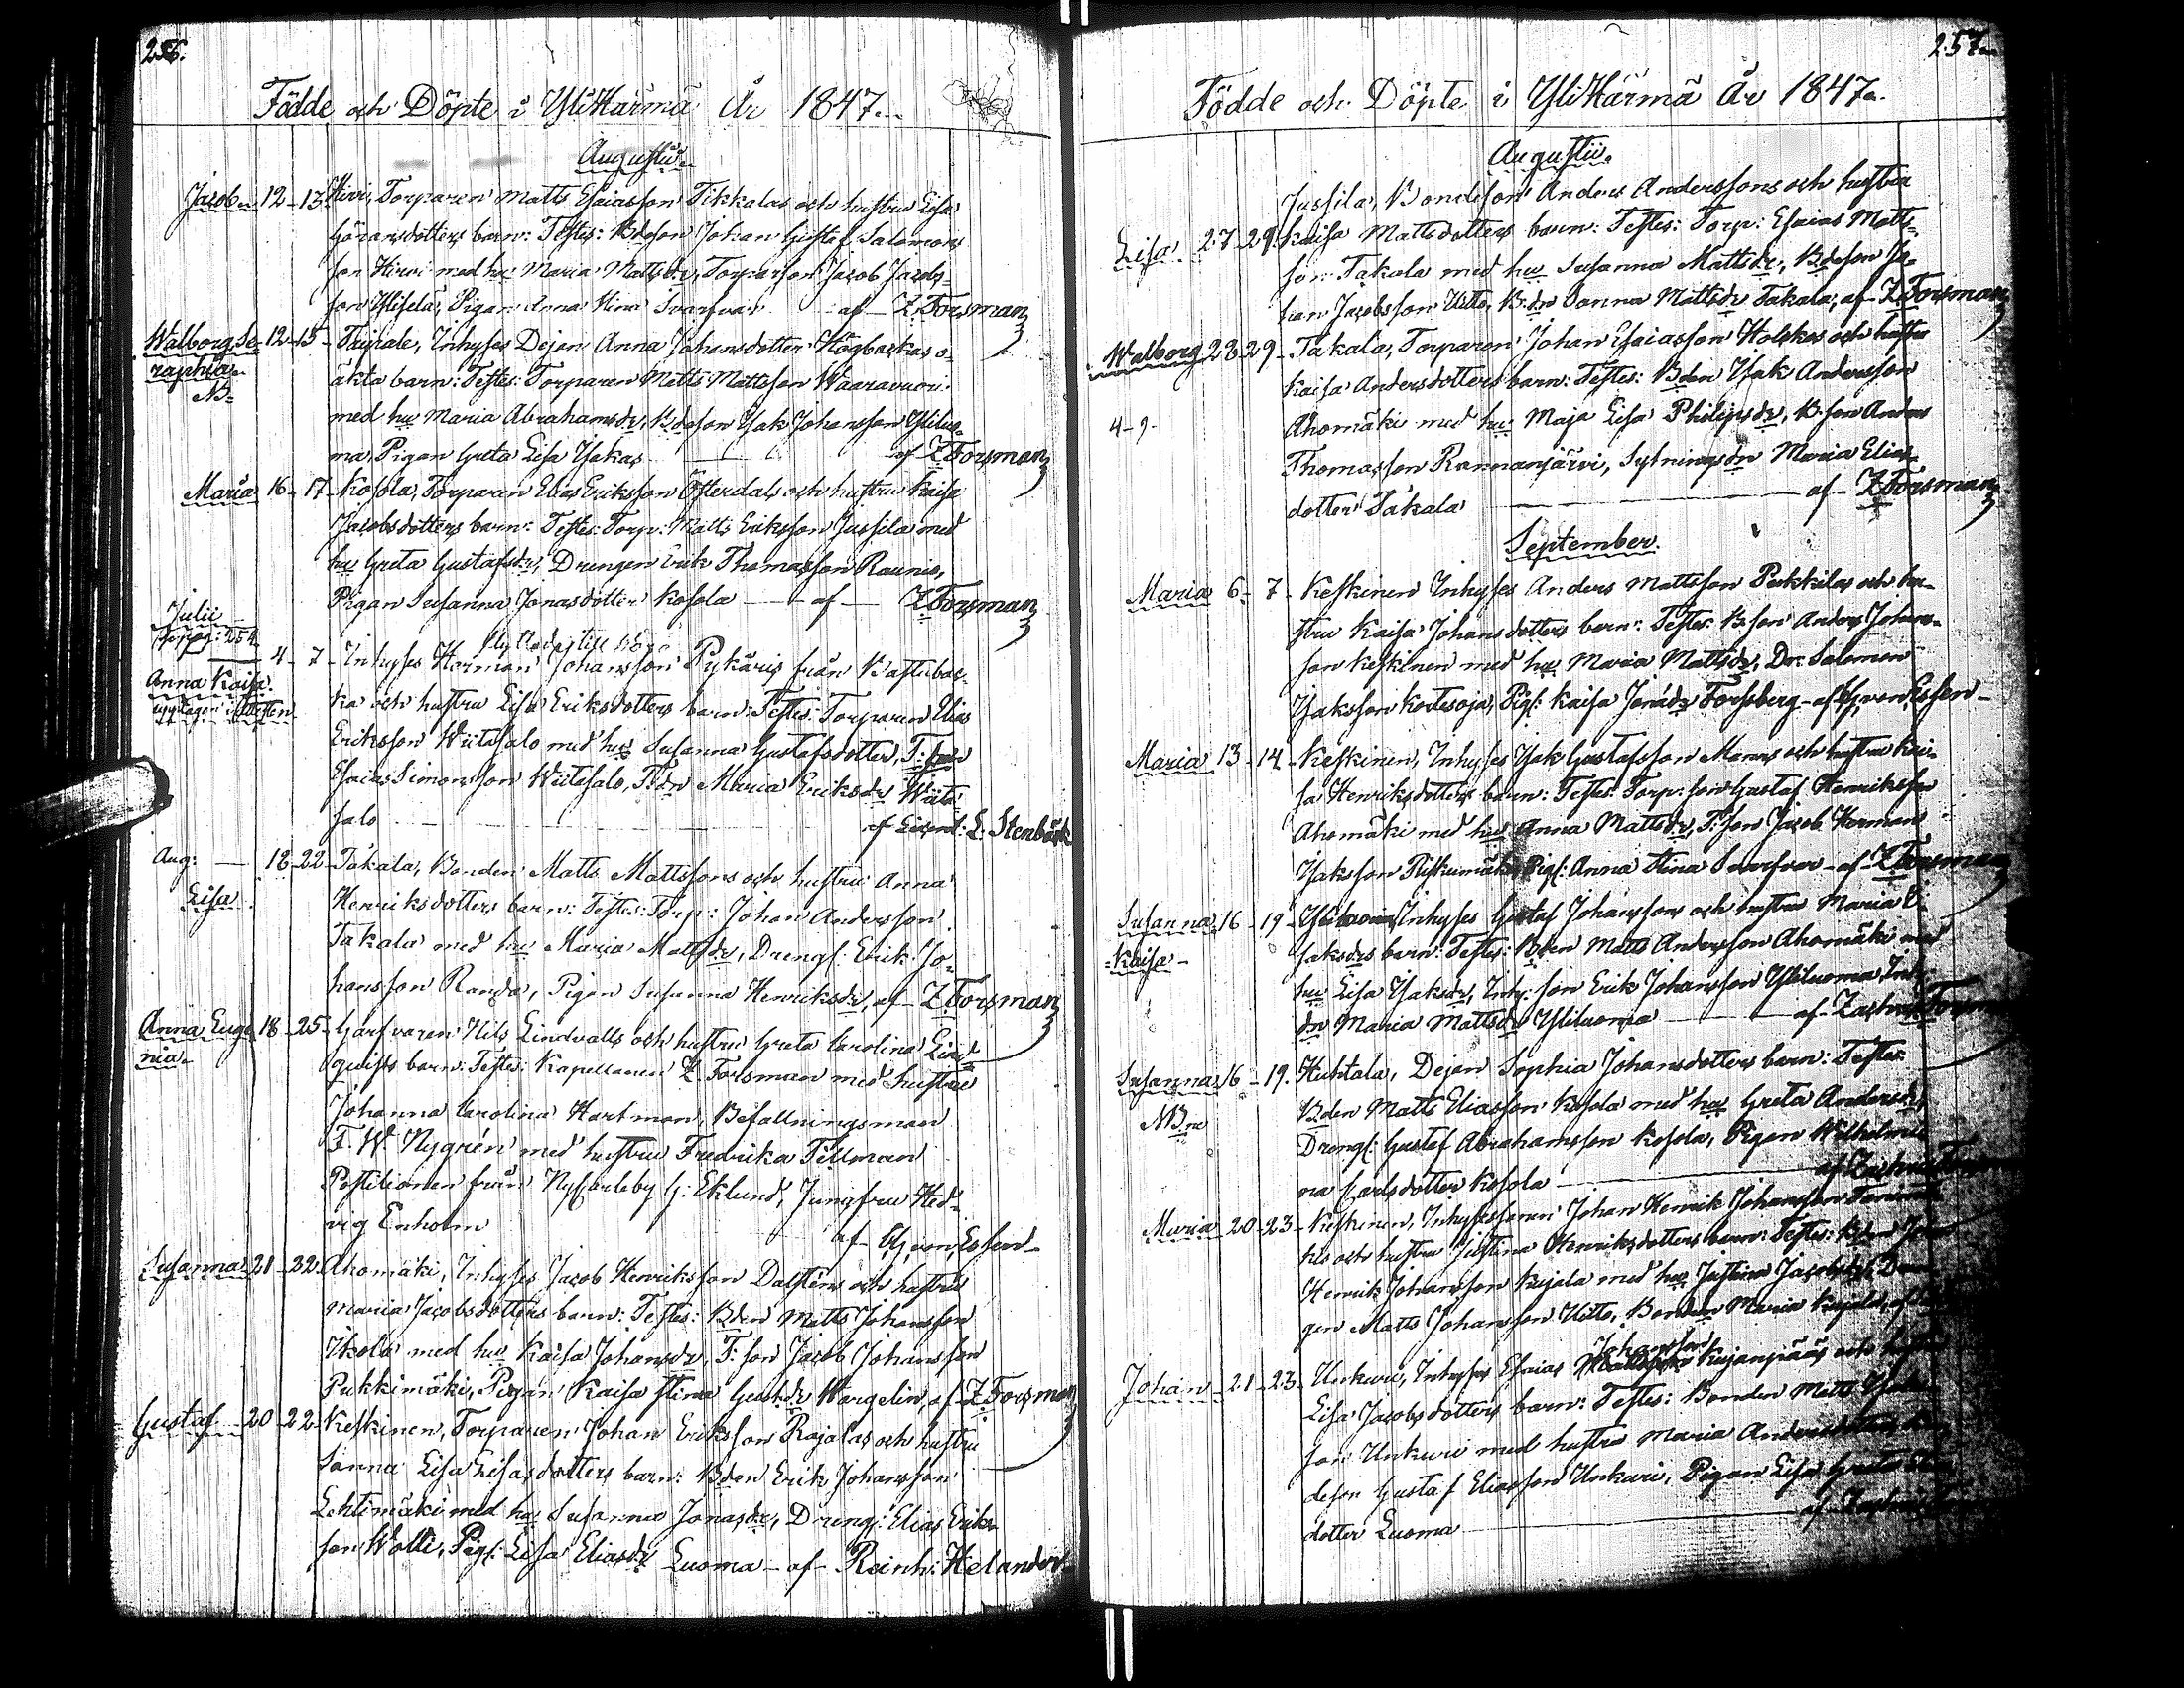 256.
Födde och Döpte i YliHärmä År 1847.
Augusti
Jacob 12-13 Hirvi, Torparen Matts Esaiasson Tikkalas och hustru Lisa
Göransdotters barn: Testes: Bdeson Johan Gustaf Salomons
son Hirvi med hu Maria Mattsdr, Torparson Jacob Jacobs-
son Ylisela, Pigan Anna Stina Svarfvar af Z Forsman
Walborg Se- 12-15 Inhyses Dejan Anna Johansdotter Högbackas o-
raphia äkta barn: Testes: Torparen Matts Mattsson Waaravuori
NB med hu Maria Abrahamsdr, Bdeson Isak Johansson Yliluo-
ma, Pigan Greta Lisa Isakas af Z Forsman
Maria 16-17 Kosola, Torparen Elias Eriksson Österdals och hustru Kaisa
Jacobsdotters barn: Testes: Torp: Matts Eriksson Jussila med
hu Greta Gustafsdr, Drengen Erik Thomasson Raunio,
Pigan Susanna Jonasdotter Kosola af Z Forsman
Julii
pag: 254
4-7 Inhyses Herman Johansson Pykäris från
Anna Kaisa
ka och hustru Lisa Eriksdotters barn: Testes: Torparen Elias
Eriksson Wiitasalo med hu Susanna Gustafsdotter, T:
Esaias Simonsson Wiitasalo, Maria Eriksdr Wiita
salo af L. Stenbäck
Aug: 18-22 Takala, Bonden Matts Mattssons och hustru Anna
Lisa Henriksdotters barn: Testes: Torp: Johan Andersson
Takala med hu Maria Mattsdr, Drengs: Erik Jo-
hansson Randa, Pigan Susanna Henriksdr, af Z Forsman
Anna Euge 18-25 Garfvaren Nils Lindvalls och hustru Greta Carolina Lind
nia. quists barn: Testes: Kapellanen Z. Forsman med hustru
Johanna Carolina Hartman, Befallningsman
F. W. Nygrén med hustru Fredrika Tellman
Postilionen från NyCarleby G: Eklund, Jungfru Hed-
vig Enholm af von Essen
Susanna 21-22 Ahomäki, Inhyses Jacob Henriksson Dalsténs och hustru
Maria Jacobsdotters barn: Testes: Bden Matts Johansson
Ikola med hu Kaisa Johansdr, T: son Jacob Johansson
Pukkimäki, Pigan Kaisa Stina Gustdr Wargelin, af Z Forsman
Gustaf 20-22 Keskinen, Torparen Johan Eriksson Rajalas och hustru
Sanna Lisa dotters barn: Bden Erik Johansson
Lehtimäki med hu Susanna Jonasdr, Drengs: Elias Eriks-
son Wolti, Pigs: Lisa Eliasdr Luoma af Reinh: Helander
257
Födde och Döpte i YliHärmä År 1847.
Augusti
Jussila, Bondeson Anders Anderssons och hustru
Lisa 27-29 Kaisa Mattsdotters barn: Testes: Torp: Esaias Matts-
son Takala med hu Susanna Mattsdr, Bdeson Jo-
han Jacobsson Uitto, B:dr Sanna Mattsdr Takala, af Z Forsman
Walborg 28-29 Takala, Torparen Johan Esaiasson Holskes och hustru
Kaisa Andersdotters barn: Testes: Bden Isak Andersson
4-9- Ahomäki med hu Maja Lisa Philipsdr, B:son Anders
Thomasson Rannanjärvi, Sytningsdr Maria Elias-
dotter Takala af Z Forsman
September.
Maria 6-7 Keskinen Inhyses Anders Mattsson Pukkilas och hu-
stru Kaisa Johansdotters barn: Testes: B:son Anders Johans-
son Keskinen med hu Maria Mattsdr, Dr: Salomon
Isaksson Kortesoja, Pigs: Kaisa Jonädr Forssberg af von Essen
Maria 13-14 Keskinen, Inhyses Isak Gustafsson Manns och hustru Kai-
sa Henriksdotters barn: Testes: Torp: son Gustaf Henriksson
Ahomäki med hu Anna Mattsdr, T: son Jacob Herman
Isaksson Riskumäki, Pigs: Anna Stina Svarfvar af Z Forsman
Susanna 16-19 Yliluoma, Inhyses Gustaf Johanssons och hustru Maria
Kaisa saksdrs barn: Testes: Bden Matts Andersson Ahomäki med
hu Lisa Isaksdr, Inhy: son Erik Johansson Yliluoma, Inh
dr Maria Mattsdr Yliluoma af Zachris Forsman
Susanna 16-19. Huhtala, Dejan Sophia Johansdotters barn: Testes:
NB Bden Matts Eliasson Kosola med hu Greta Andersdr,
Drengs: Gustaf Abrahamsson Kosola, Pigan Wilhelmi
na Carlsdotter Kosola af Zachris
Maria 20-23 Keskinen, Inhysessonen Johan Henrik Johansson
och hustru Justina Henriksdotters barn: Testes:
Henrik Johansson Kujala med hu Justina Jacobsdr, Dren
gen Matts Johansson Uitto, Maria Kujala, af
Johansson
Johan 21-23 Unkuri, Inhyses Esaias Kujanpääs och hustru
Lisa Jacobsdotters barn: Testes: Bonden Matts
son Unkuri med hustru Maria
deson Gustaf Eliasson Unkuri, Pigan Lisa Greta
dotter Luoma af